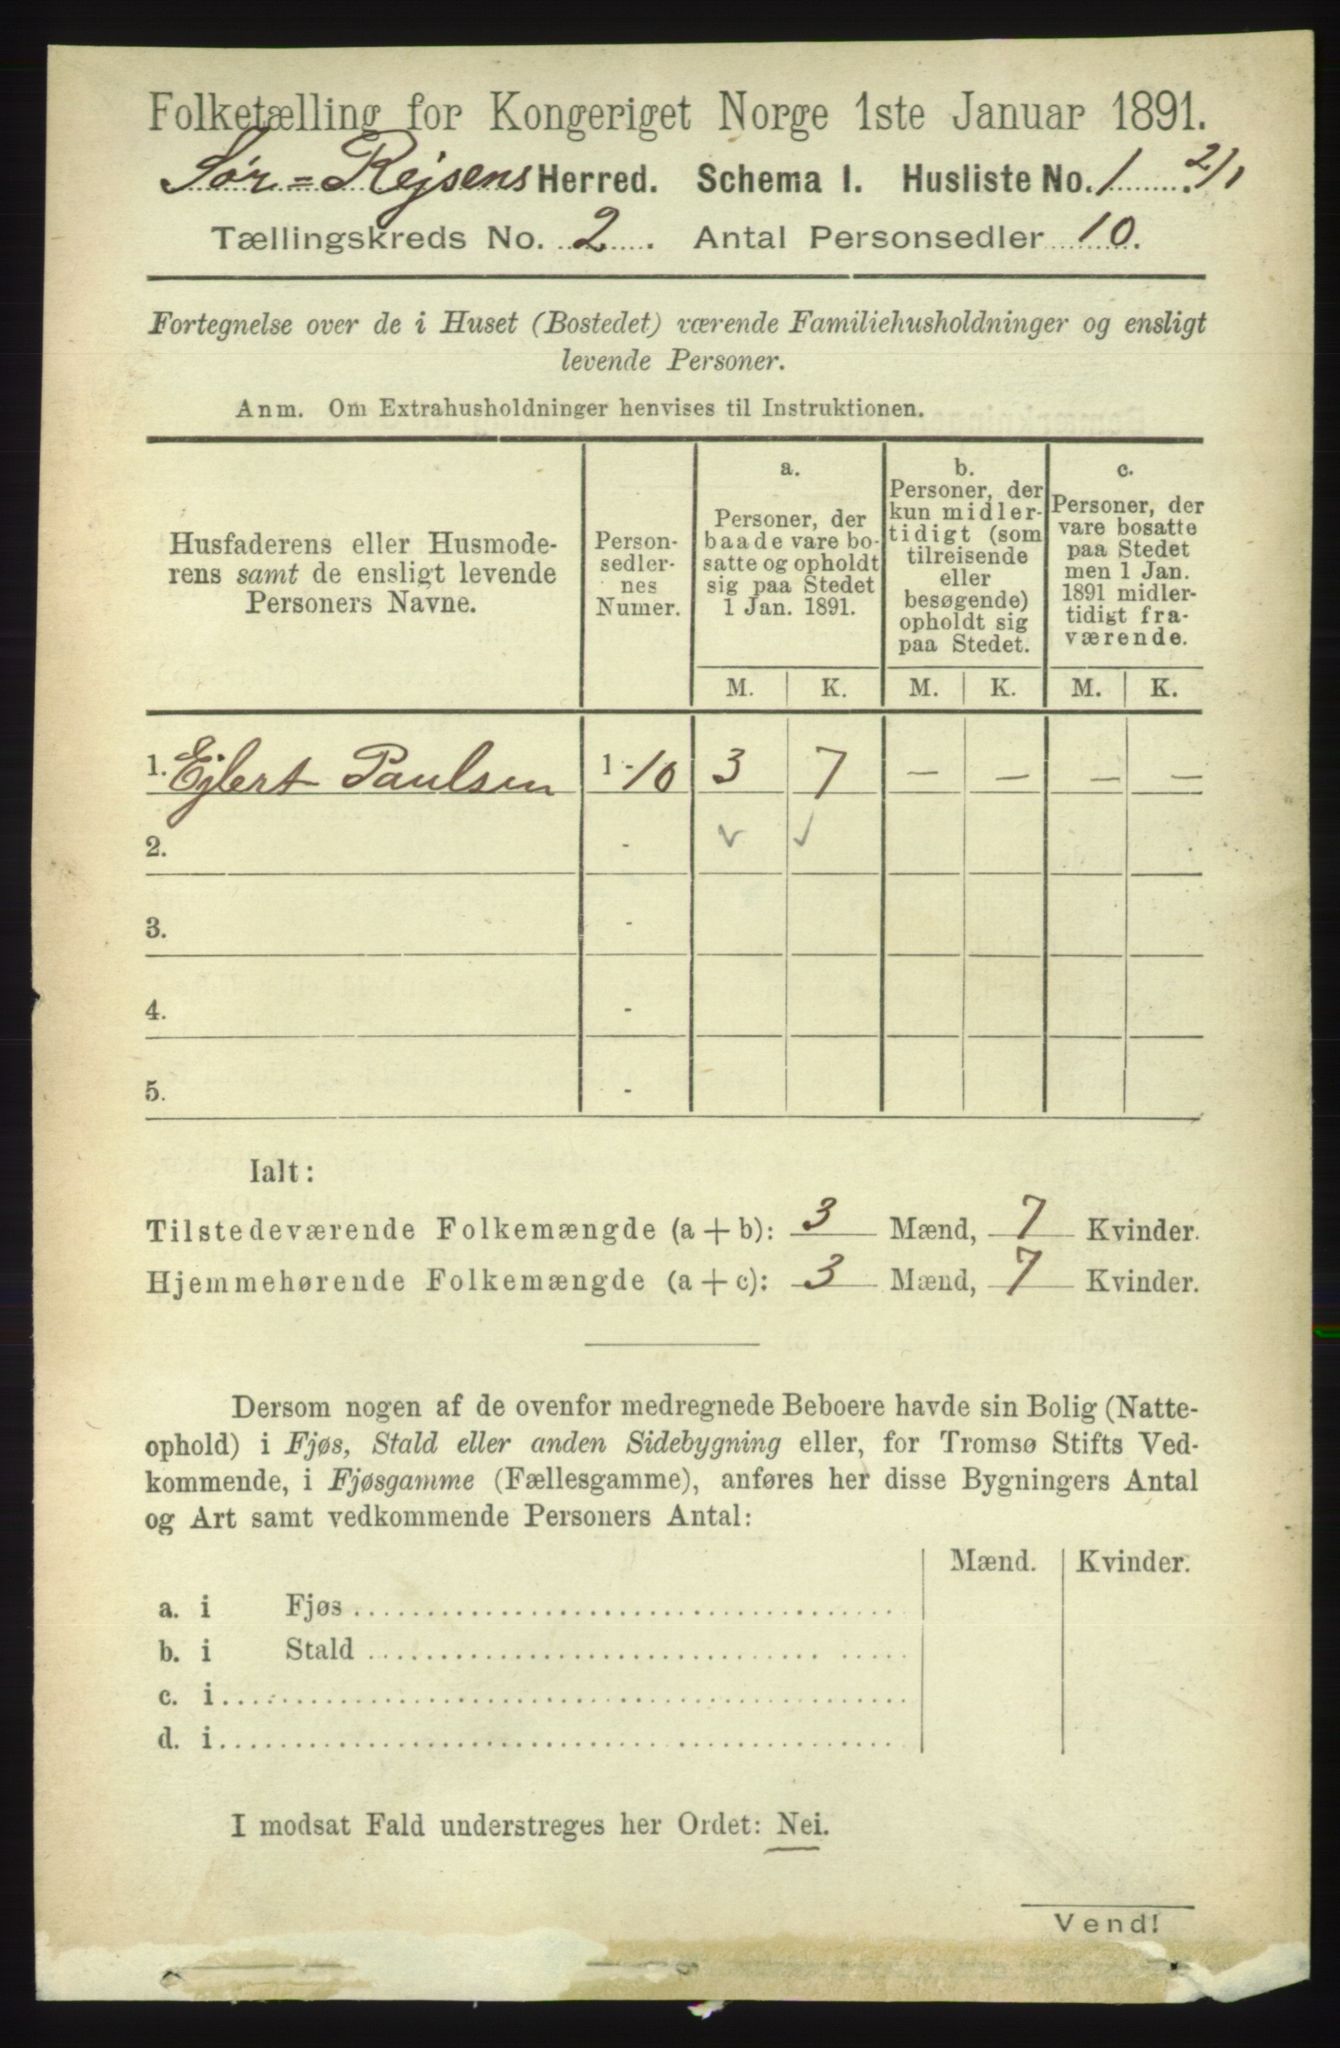 Folketælling for Kongeriget Norge 1ste Januar 1891.
Sør-Rejsens Herred. Schema I. Husliste No. 1 2/1
Tællingskreds No. 2. Antal Personsedler 10.
Fortegnelse over de i Huset (Bostedet) værende Familiehusholdninger og ensligt
levende Personer.
Anm. Om Extrahusholdninger henvises til Instruktionen.
Husfaderens eller Husmode-
rens samt de ensligt levende
Personers Navne.
Person-
sedler-
nes
Numer.
a.
Personer, der
baade vare bo-
satte og opholdt
sig paa Stedet
1 Jan. 1891.
b.
Personer, der
kun midler-
tidigt (som
tilreisende
eller
besøgende)
opholdt sig
paa Stedet.
c.
Personer, der
vare bosatte
paa Stedet
men 1 Jan.
1891 midler-
tidigt fra-
værende.
M. K. M. K. M. K.
1. Ejlert Paulsen 1-10 3 7 — — — —
2. - ✓ ✓
3. -
4. -
5. -
Ialt:
Tilstedeværende Folkemængde (a + b): 3 Mænd, 7 Kvinder.
Hjemmehørende Folkemængde (a + c): 3 Mænd, 7 Kvinder.
Dersom nogen af de ovenfor medregnede Beboere havde sin Bolig (Natte-
ophold) i Fjøs, Stald eller anden Sidebygning eller, for Tromsø Stifts Ved-
kommende, i Fjøsgamme (Fællesgamme), anføres her disse Bygningers Antal
og Art samt vedkommende Personers Antal:
Mænd. Kvinder.
a. i Fjøs
b. i Stald
c. i
d. i
I modsat Fald understreges her Ordet: Nei.
Vend!